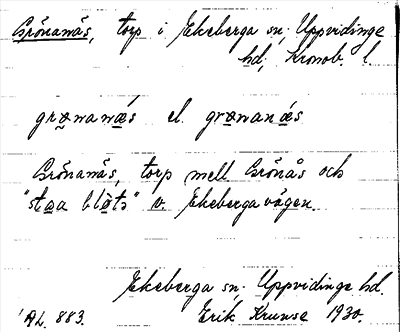 Grönanäs, torp i Ekeberga sn; Uppvidinge
hd; Kronob. l.
grønanǽs el. grønanǽs
Grönanäs, torp mell Grönås och
"staa blåts" v. Ekeberga vägen.
Ekeberga sn; Uppvidinge hd.
AL. 883. Erik Krunse 1930.